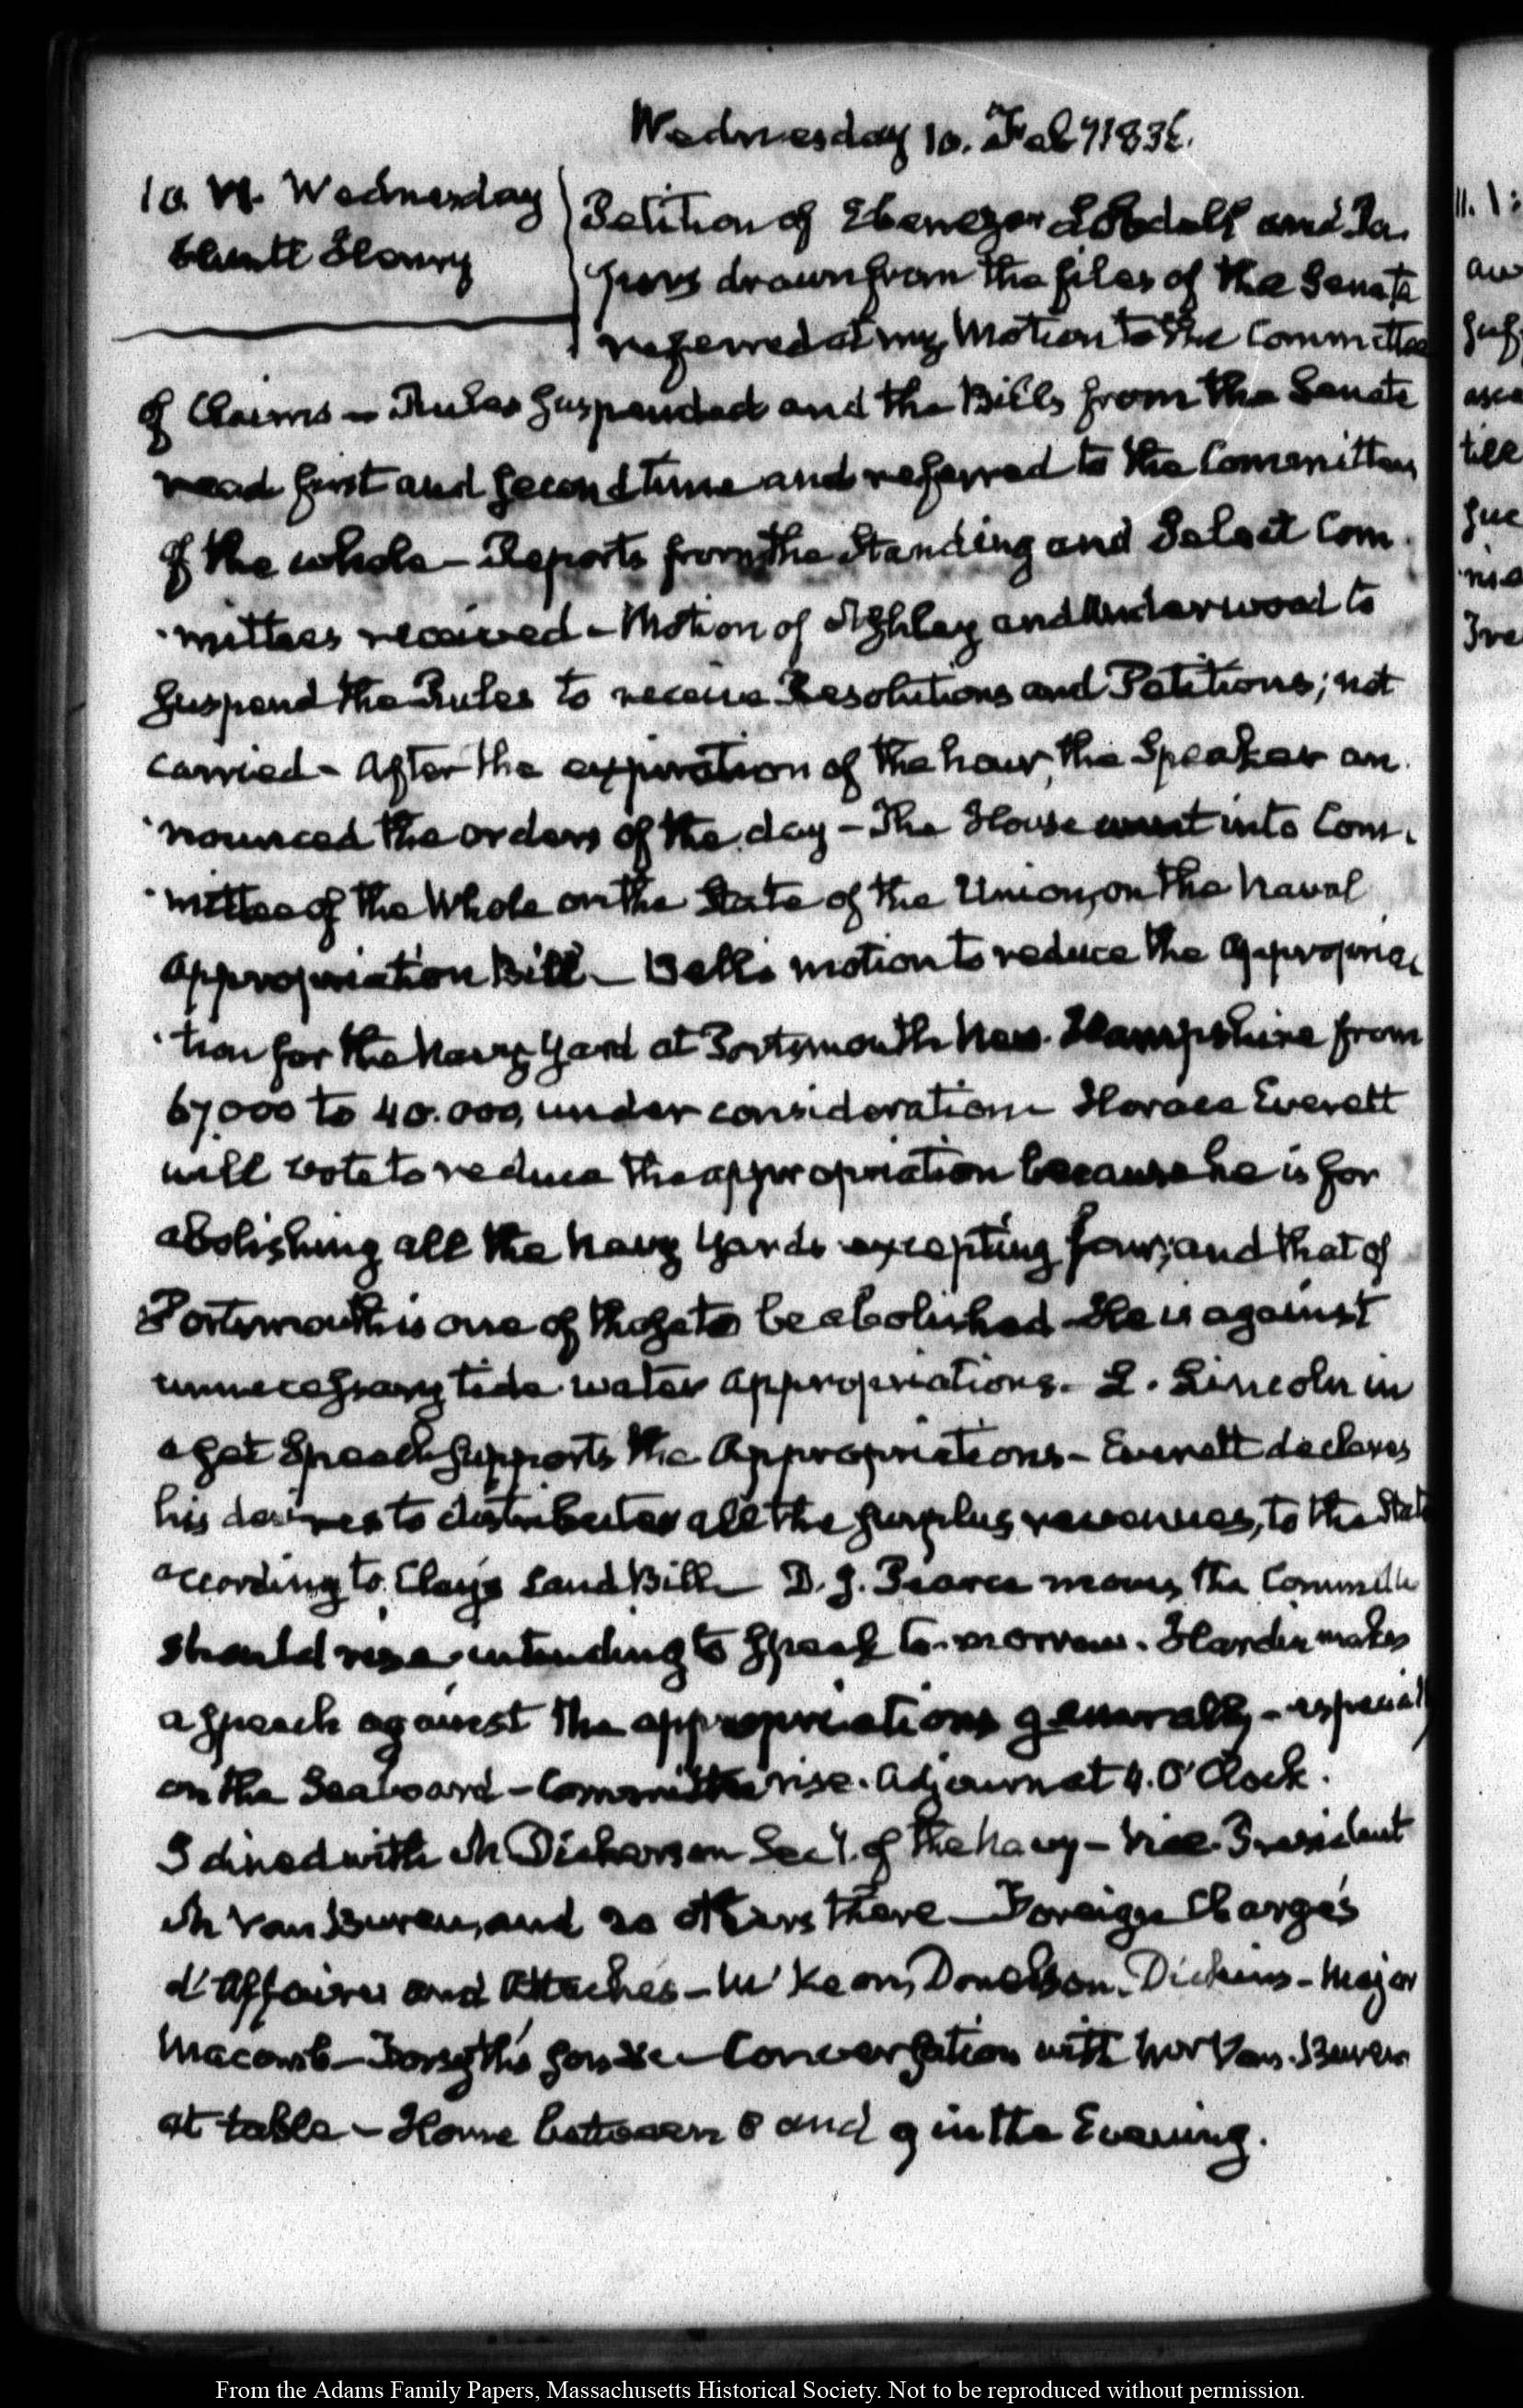 Wednesday 10. Feby 1836.
10. VI. Wednesday
Bluntt Henry
Petition of Ebenezer Lobdell and Pa-
pers drawn from the files of the Senate
referred at my Motion to the Committee
of Claims – Rules suspended and the Bills from the Senate
read first and second time and referred to the Committees
of the whole – Reports from the Standing and Select Com-
-mittees received – Motion of Ashley and Underwood to
suspend the Rules to receive Resolutions and Petitions; not
carried – After the expiration of the hour, the Speaker an-
-nounced the orders of the day – The House went into Com-
-mittee of the Whole on the State of the Union, on the Naval
appropriation Bill – Bell's motion to reduce the appropria-
-tion for the Navy Yard at Portsmouth New-Hampshire from
67,000 to 40.000, under consideration – Horace Everett
will vote to reduce the appropriation because he is for
abolishing all the Navy Yards excepting four; and that of
Portsmouth is one of those to be abolished – He is against
unnecessary tide-water appropriations – L. Lincoln in
a set Speech supports the Appropriations – Everett declares
his desires to distribute all the surplus revenues, to the States
according to Clay's Land Bill – D. J. Pearce moves the Committee
should rise intending to speak to-morrow. Hardin makes
a speech against the appropriations generally – especially
on the Seaboard – Committee rise. Adjourn at 4. O'Clock.
I dined with Mr Dickerson Secy. of the Navy – Vice-President
Mr Van Buren, and 20 others there – Foreign Chargés
d'Affaires and Attachés – McKeon, Donelson, Dickins – Major
Macomb – Forsyth's son &c – Conversation with Mr Van-Buren
at table – Home between 8 and 9 in the Evening.
11. V:
au
till
From the Adams Family Papers, Massachusetts Historical Society. Not to be reproduced without permission.